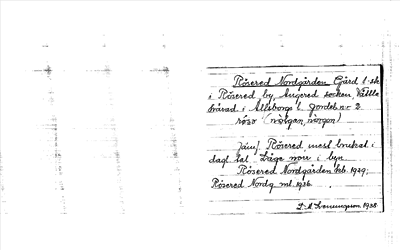 Rösered Nordgården Gård 1 sk
i Rösered by, Angered socken, Vättle
härad i Älvsborgs l. Jordeb. nr 2.
Jämf. Rösered, mest brukat i
dagl. tal. Läge norr i byn
Rösered Nordgården kb. 1929;
Rösered Nordg. ml. 1926.
1938